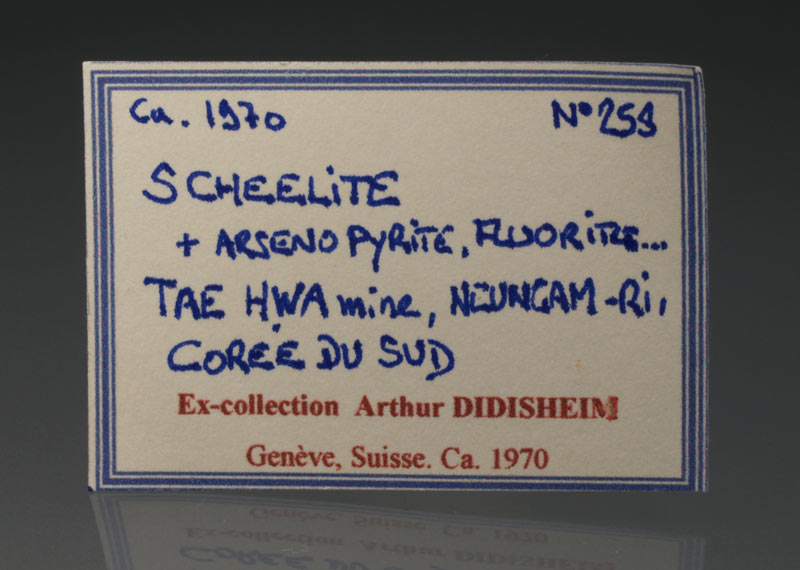 Ca. 1970 N° 259
SCHEELiTE
+ ARSENOPYRiTE, FLUORiTE...
TAE HWA mine, NEUNGAM-Ri,
COREE DU SUD
Ex-collection Arthur DIDISHEIM
Genève, Suisse. Ca. 1970